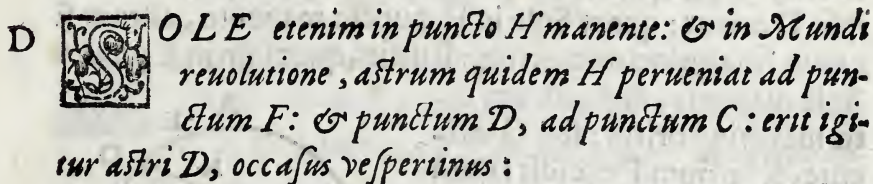 D SOLE etenim in puncto H manente: & in Mundi
reuolutione, astrum quidem H perueniat ad pun-
ctum F: & punctum D, ad punctum C: erit igi-
tur astri D, occasus vespertinus: